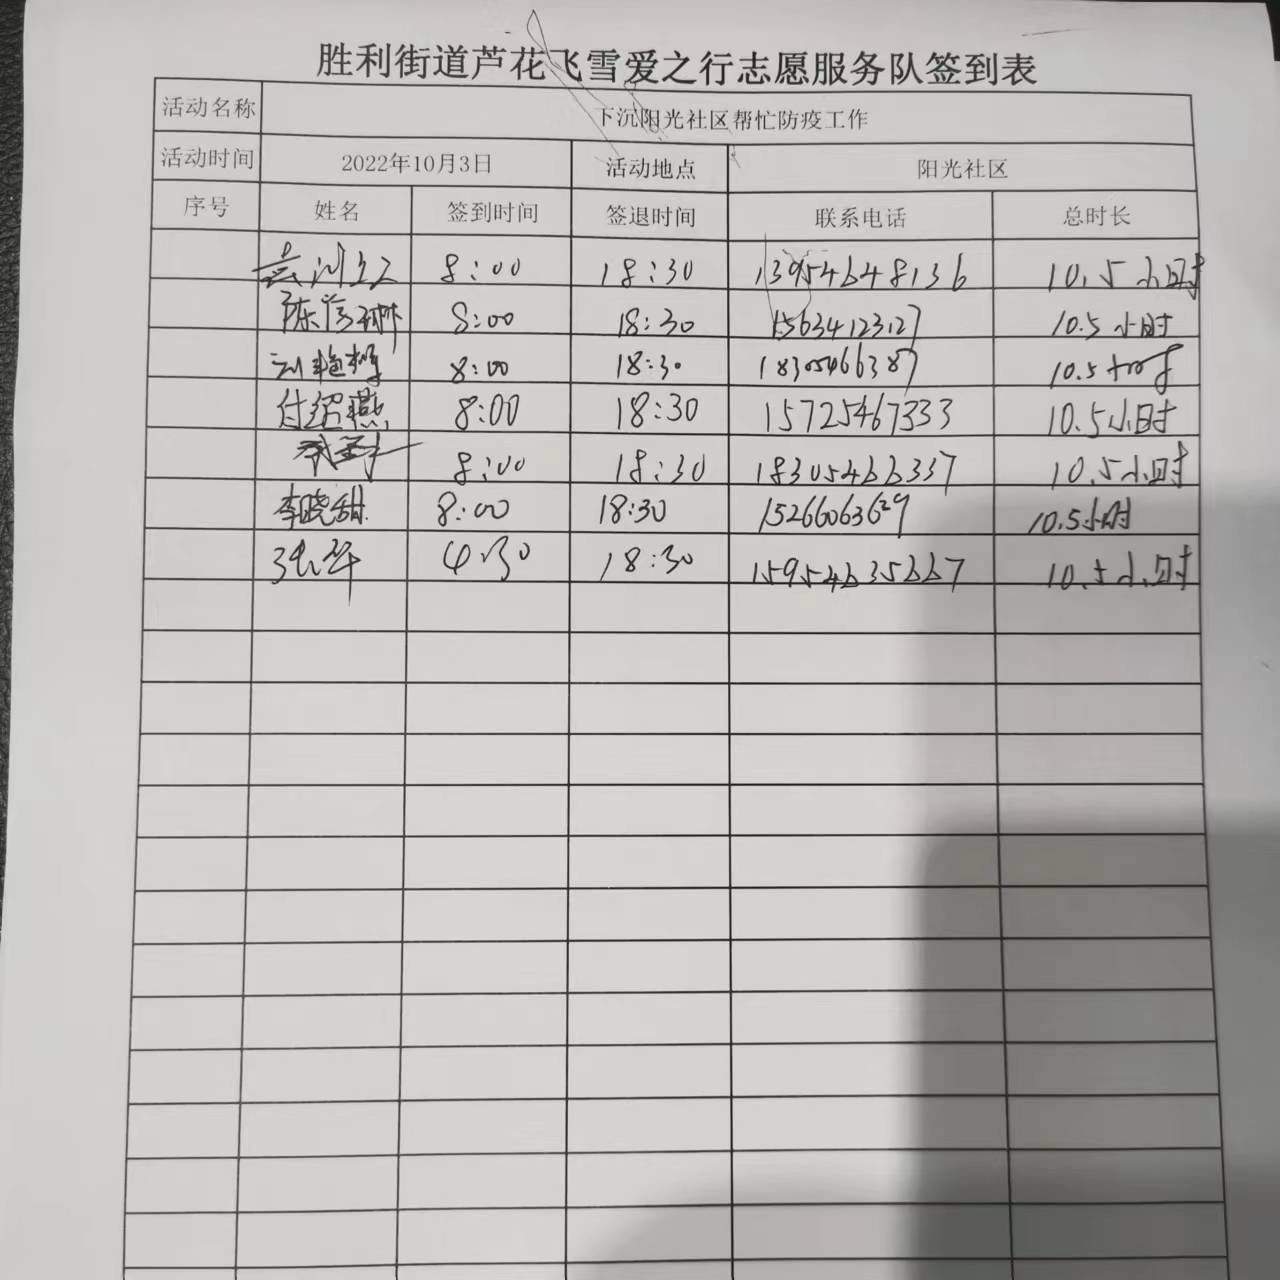 胜利街道芦花飞雪爱之行志愿服务队签到表
活动名称 下沉阳光社区帮忙防疫工作
活动时间 2022年10月3日 活动地点 阳光社区
序号 姓名 签到时间 签退时间 联系电话 总时长
8:00 18:30 13954648136 10.5小时
陈 8:00 18:30 15634123127 10.5小时
刘艳 8:00 18:30 18305466387 10.5小时
付绍燕 8:00 18:30 15725467333 10.5小时
8:00 18:30 18305466337 10.5小时
李晓甜 8:00 18:30 15266063629 10.5小时
张华 18:30 15954635667 10.5小时